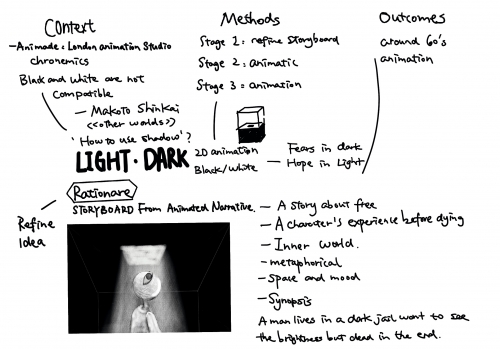 Context
- Animade: London animation Studio
chronemics
Black and white are not
compatible
- Makoto Shinkai
<<other worlds>>
'How to use shadow'?
LIGHT · DARK
Methods
Stage 1: refine Storyboard
Stage 2: animatic
Stage 3 = animation
2D animation
Black/White
- Fears in dark
Hope in Light
Outcomes
around 60's
animation
Rationare
Refine
Idea
STORYBOARD From Animated Narrative.
- A story about free
- A character's experience before dying
- Inner world.
- metaphorical
- Space and mood
- Synopsis
A man lives in a dark jail want to see
the brightness but dead in the end.